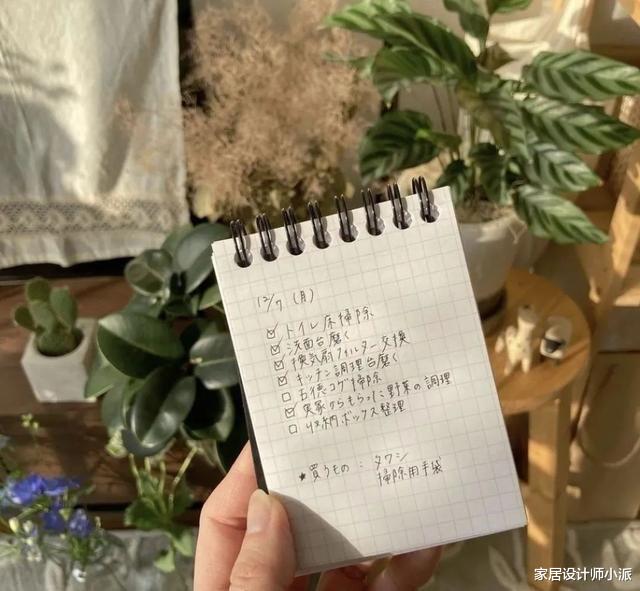 12/7 (月)
☑ トイレ床掃除
☑ 洗面台磨く
☑ 換気扇フィルター交換
☑ キッチン調理台磨く
☐ 五徳コゲ掃除
☑ 実家からもらった野菜の調理
☐ 収納ボックス整理
★買うもの : タワシ
掃除用手袋
家居设计师小派